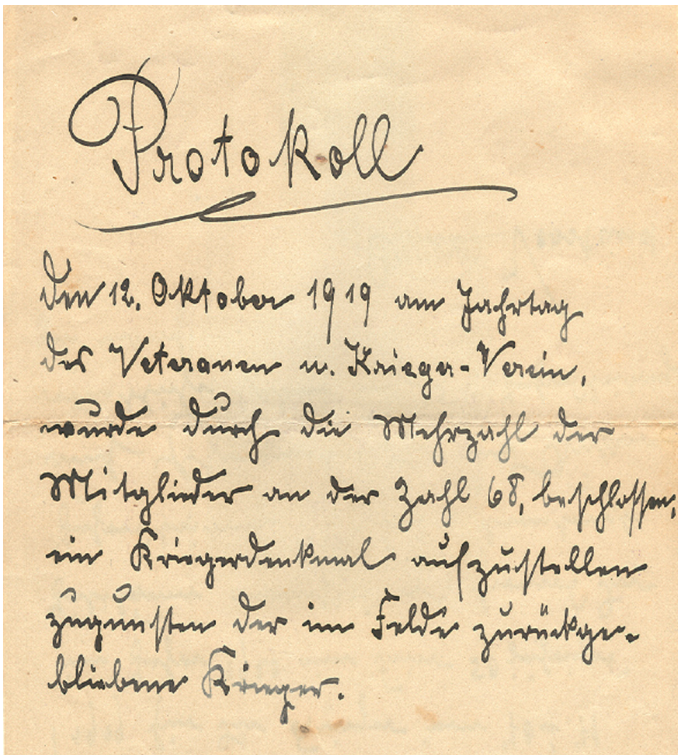 Protokoll
Den 12. Oktober 1919 am Jahrtag
des Veteranen u. Krieger-Verein,
wurde durch die Mehrzahl der
Mitglieder an der Zahl 68, beschlossen,
ein Kriegerdenkmal aufzustellen
zugunsten der im Felde zurückge-
bliebene Krieger.